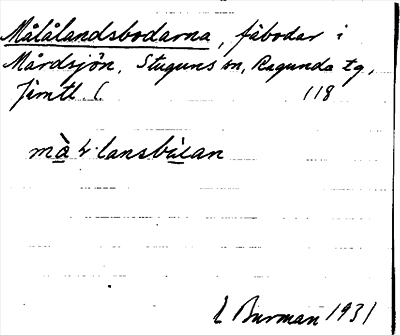 Målålandsbodarna, fäbodar i
Mårdsjön, Stuguns sn, Ragunda tg,
Jämtl. l. 118
lansbùan
L Burman 1931